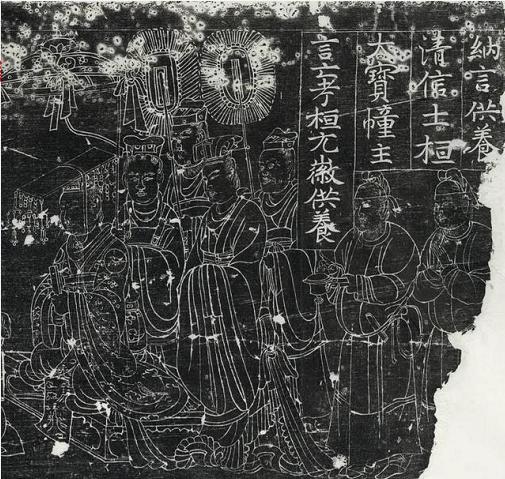 言子桓元徽供養
大寶幢主
清信士桓
納言供養